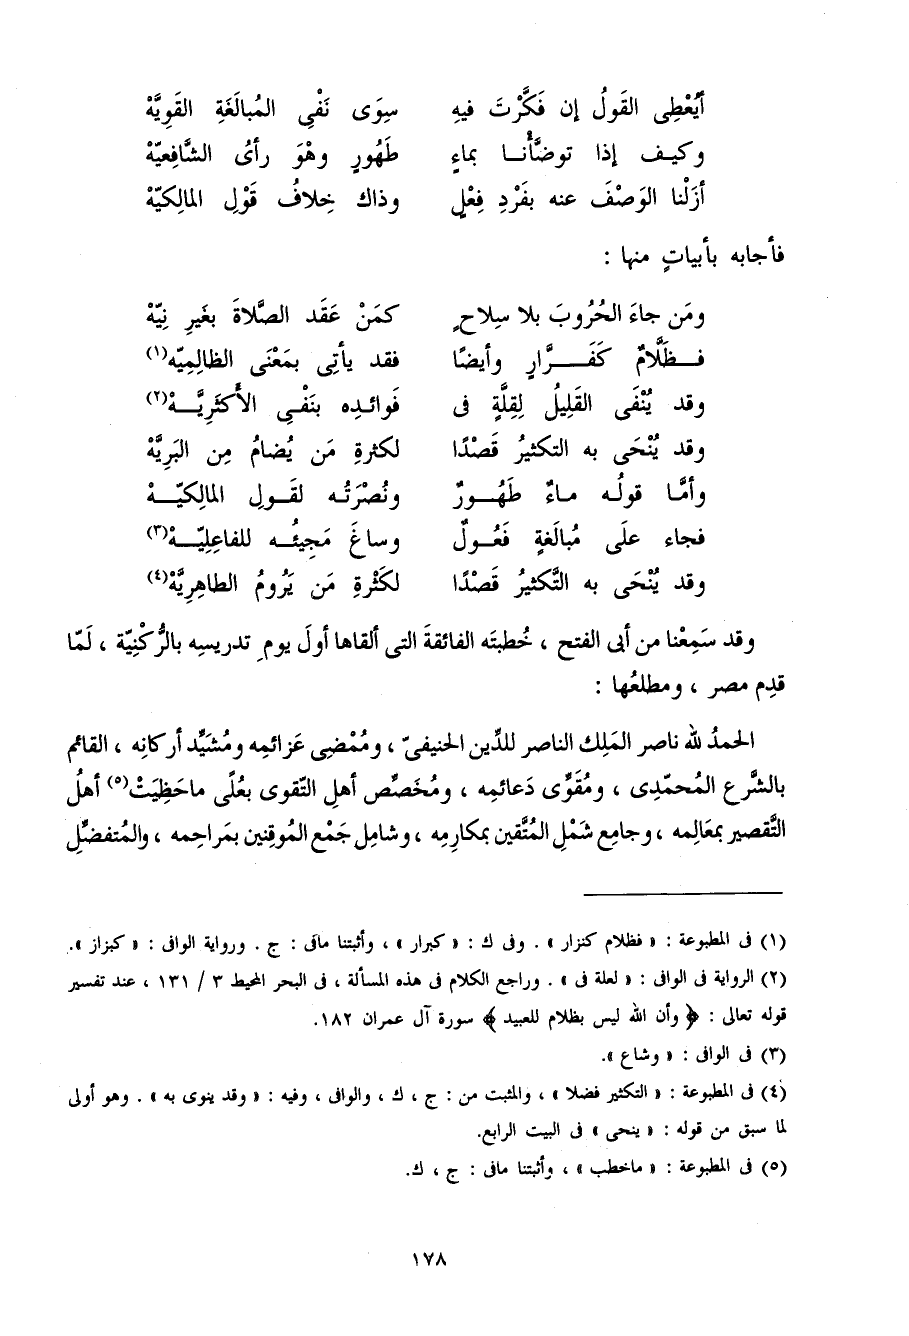 أيُعْطِى القَولُ إن فَكَّرْتَ فيهِ سِوَى نَفْىِ المُبالَغَةِ القَوِيَّهْ
وكيـف إذا توضَّأْنـا بماءٍ طَهُورٍ وهْوَ رأىُ الشَّافِعيّهْ
أزَلْنا الوَصْفَ عنه بفَرْدِ فِعْلٍ وذاك خِلافُ قَوْلِ المالِكيّهْ
فأجابه بأبياتٍ منها :
ومَن جاءَ الحُرُوبَ بلا سِلاحٍ كمَنْ عَقَد الصَّلاةَ بغَيرِ نِيّهْ
فـظَّلَّامٌ كَفَـــرَّارٍ وأيضًا فقد يأتِى بمَعْنَى الظالِميّه(١)
وقد يُنْفَى القَلِيلُ لِقِلَّةٍ فى فَوائـدِه بنَفْـىِ الأكْثَرِيَّـهْ(٢)
وقد يُنْحَى به التكثيرُ قَصْدًا لكثرةِ مَن يُضامُ مِن البَرِيَّهْ
وأمَّا قولُه مـاءٌ طَهُــورٌ ونُصْرَتُـه لقَـولِ المالِكيّـهْ
فجاء علَى مُبالَغةٍ فَعُــولٌ وساغَ مَجِيئُـه للفاعِليّـهْ(٣)
وقد يُنْحَى به التَّكثيرُ قَصْدًا لكَثْرةِ مَن يَرُومُ الطاهِريَّهْ(٤)
وقد سَمِعْنا من أبى الفتح ، خُطبتَه الفائقةَ التى ألقاها أولَ يومِ تدريسِه بالرُّكْنِيّة ، لَمّا
قدِم مصر ، ومطلعُها :
الحمدُ لله ناصر المَلِك الناصر للدِّين الحنيفىّ ، ومُمْضِى عَزائمِه ومُشَيِّد أركانِه ، القائم
بالشَّرع المُحمّدِى ، ومُقَوِّى دَعائمِه ، ومُخَصِّص أهلِ التّقوى بعُلًى ماحَظِيَتْ(٥) أهلُ
التَّقصير بمَعالِمه ، وجامِع شَمْلِ المُتَّقين بمكارِمِه ، وشامِل جَمْع المُوقنِين بمَراحِمه ، والمُتفضِّل
(١) فى المطبوعة : « فظلام كنزار » . وفى ك : « كبرار » ، وأثبتنا مافى : ج . ورواية الوافى : « كبزاز ».
(٢) الرواية فى الوافى : « لعلة فى » . وراجع الكلام فى هذه المسألة ، فى البحر المحيط ٣ / ١٣١ ، عند تفسير
قوله تعالى : ﴿ وأن الله ليس بظلام للعبيد ﴾ سورة آل عمران ١٨٢.
(٣) فى الوافى : « وشاع ».
(٤) فى المطبوعة : « التكثير فضلا » ، والمثبت من : ج ، ك ، والوافى ، وفيه : « وقد ينوى به » . وهو أولى
لما سبق من قوله : « ينحى » فى البيت الرابع.
(٥) فى المطبوعة : « ماخطب » ، وأثبتنا مافى : ج ، ك.
١٧٨